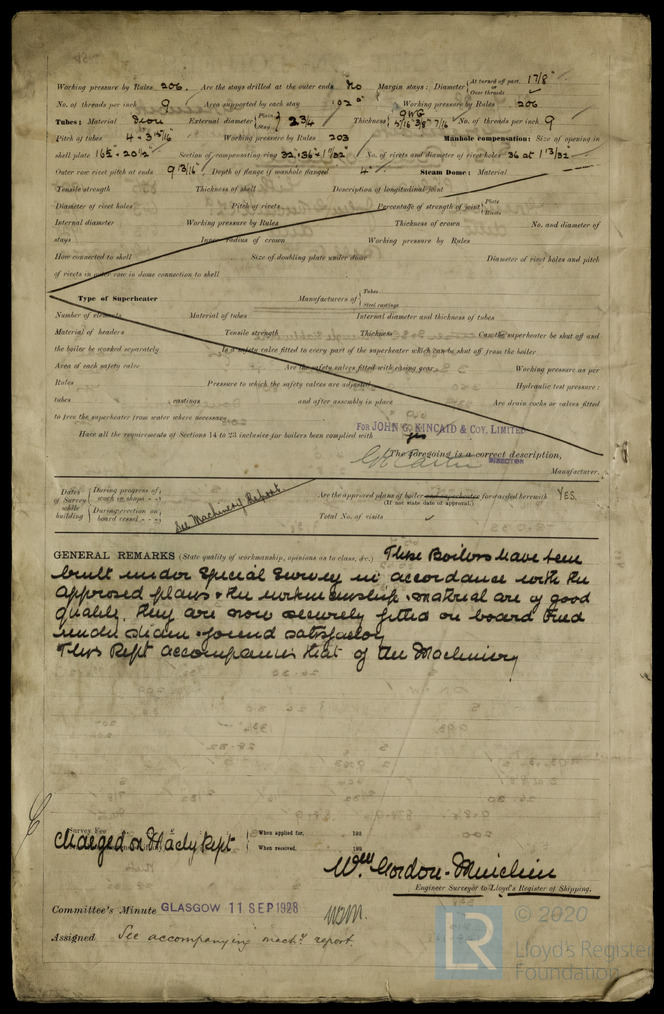 Working pressure by Rules 206. Are the stays drilled at the outer ends No Margin stays: Diameter { At turned off part, or Over threads 1 7/8"
No. of threads per inch 9 Area supported by each stay Working pressure by Rules 206
Tubes: Material Iron External diameter { Plain Stay 2 3/4 Thickness { 9WG 5/16" 3/8" 7/16 No. of threads per inch 9
Pitch of tubes 4" × 3 15/16" Working pressure by Rules 203 Manhole compensation: Size of opening in
shell plate 16½" × 20½" Section of compensating ring 32"×36"×1 7/32" No. of rivets and diameter of rivet holes 36 at 1 3/32"
Outer row rivet pitch at ends 9 3/16" Depth of flange if manhole flanged 4" Steam Dome: Material
Tensile strength Thickness of shell Description of longitudinal joint
Diameter of rivet holes Pitch of rivets Percentage of strength of joint { Plate Rivets
Internal diameter Working pressure by Rules Thickness of crown No. and diameter of
stays Inner radius of crown Working pressure by Rules
How connected to shell Size of doubling plate under dome Diameter of rivet holes and pitch
of rivets in outer row in dome connection to shell
Type of Superheater Manufacturers of { Tubes Steel castings
Number of elements Material of tubes Internal diameter and thickness of tubes
Material of headers Tensile strength Thickness Can the superheater be shut off and
the boiler be worked separately Is a safety valve fitted to every part of the superheater which can be shut off from the boiler
Area of each safety valve Are the safety valves fitted with easing gear Working pressure as per
Rules Pressure to which the safety valves are adjusted Hydraulic test pressure:
tubes castings and after assembly in place Are drain cocks or valves fitted
to free the superheater from water where necessary
FOR JOHN G. KINCAID & COY. LIMITED
Have all the requirements of Sections 14 to 23 inclusive for boilers been complied with yes
The foregoing is a correct description,
DIRECTOR
Manufacturer.
Dates of Survey while building { During progress of work in shops - - During erection on board vessel - - } See Machinery Report
Are the approved plans of boiler and superheater forwarded herewith YES.
(If not state date of approval.)
Total No. of visits
GENERAL REMARKS (State quality of workmanship, opinions as to class, &c.) These Boilers have been
built under Special Survey in accordance with the
approved plans & the workmanship & material are of good
quality. they are now securely fitted on board tried
under steam & found satisfactory
This Rept accompanies that of the Machinery
Survey Fee Charged on Machy Rept { When applied for, 192
When received, 192
Wm Gordon-Muichin
Engineer Surveyor to Lloyd's Register of Shipping.
Committee's Minute GLASGOW 11 SEP 1928
Assigned See accompanying machy. report.
LR © 2020
Lloyd's Register
Foundation